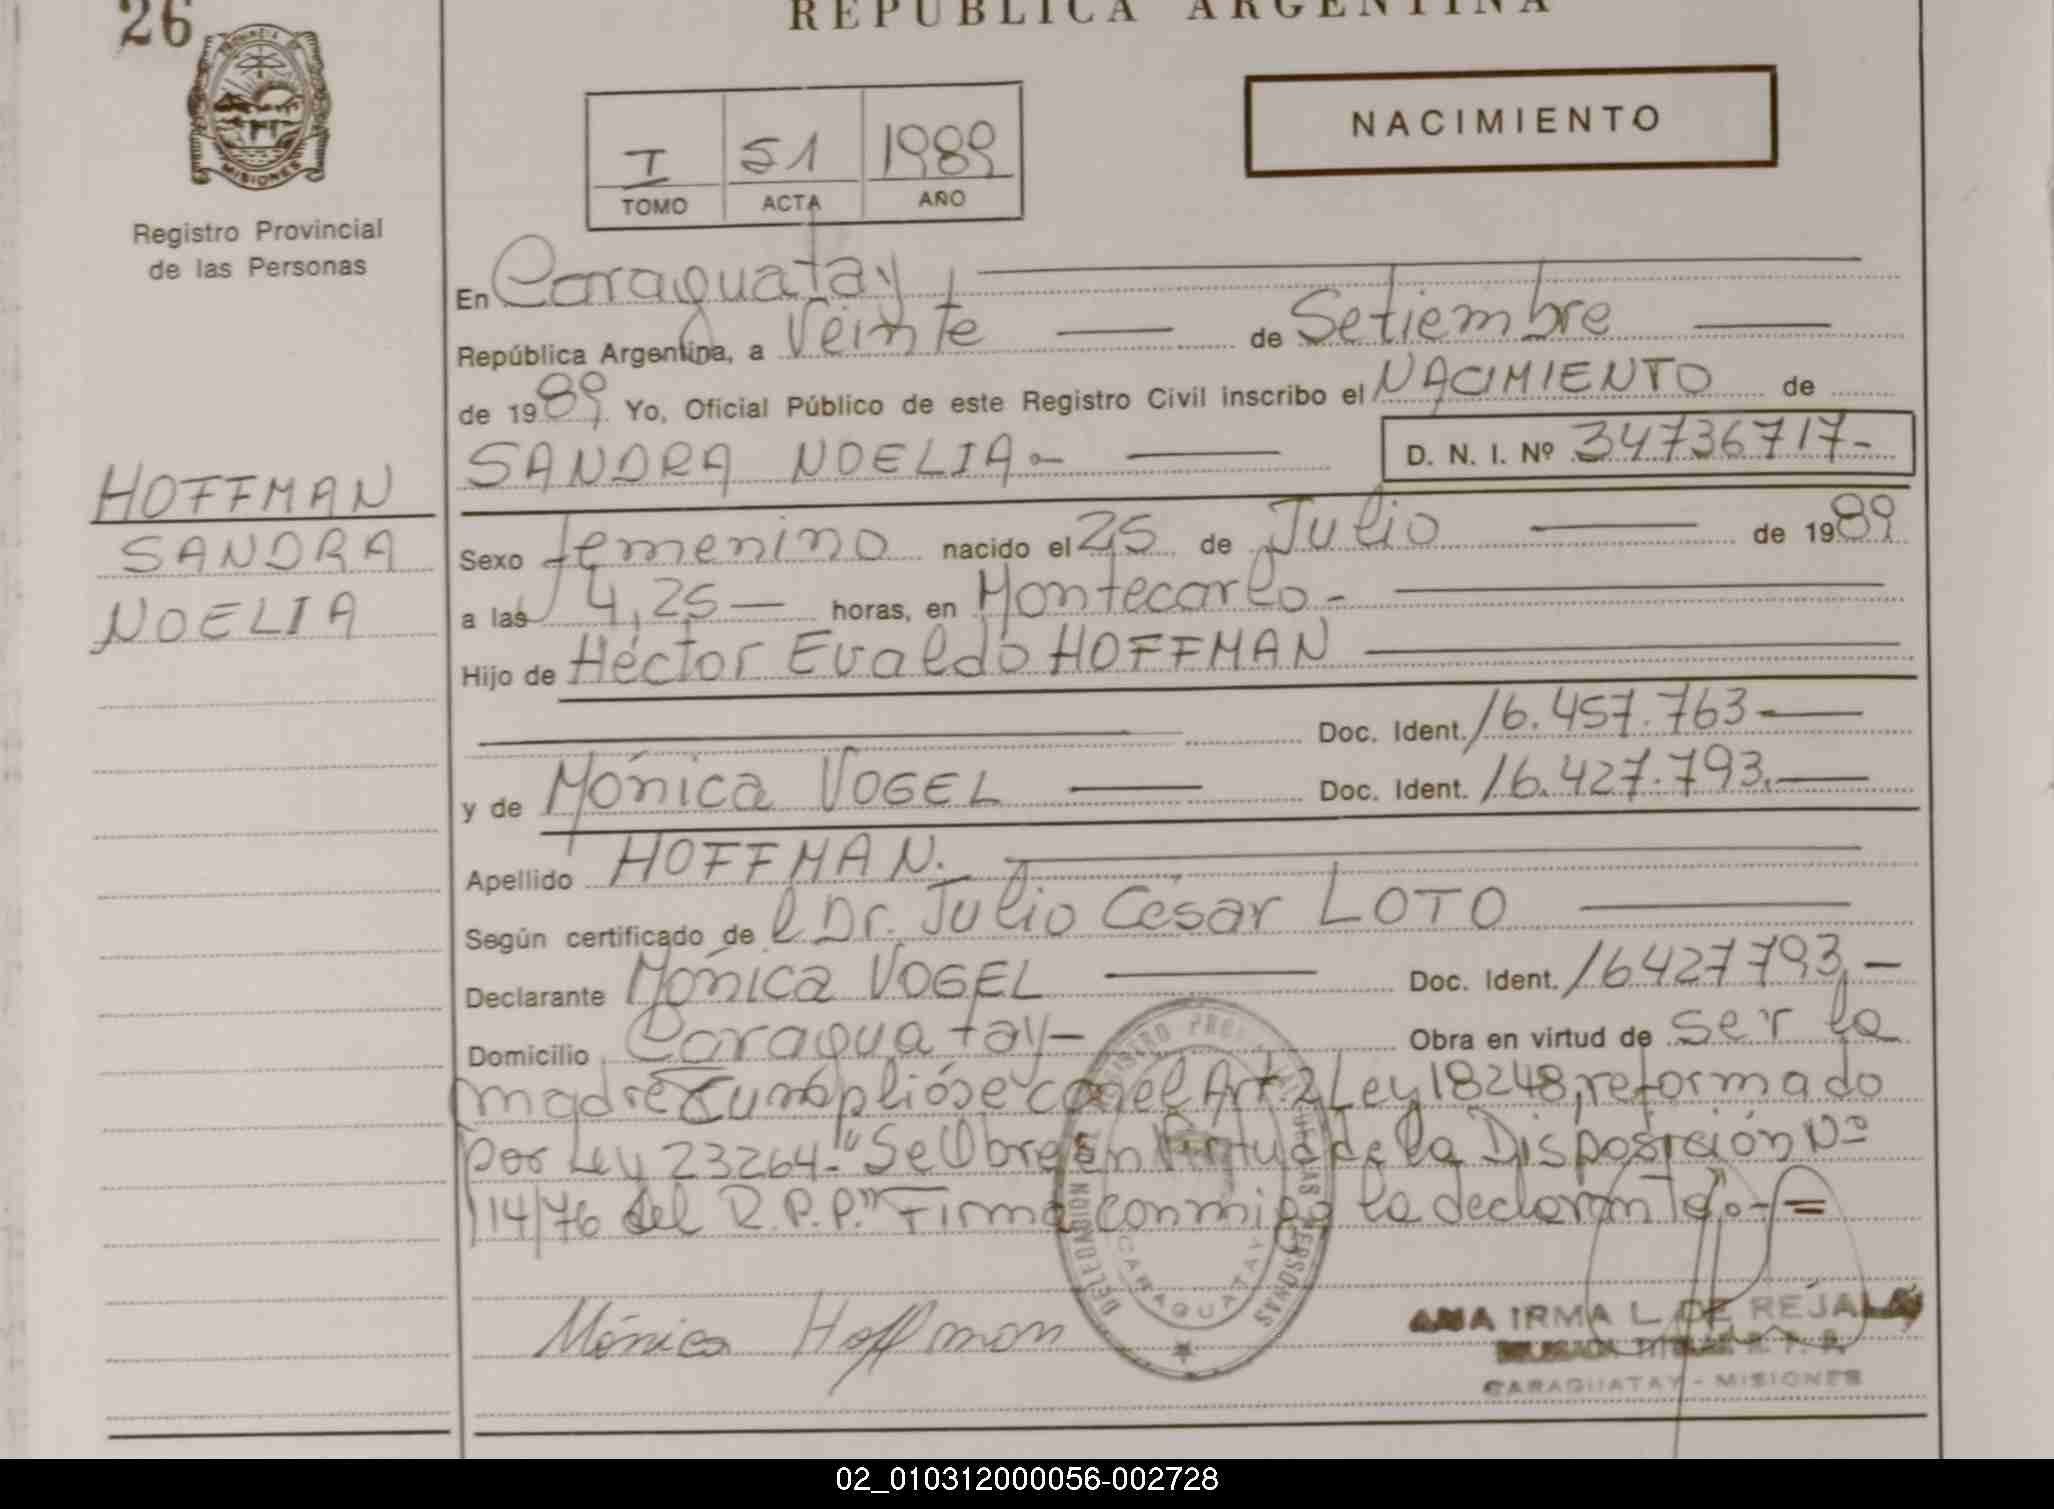 26
REPUBLICA ARGENTINA
PROVINCIA DE
MISIONES
Registro Provincial
de las Personas
I 51 1989
TOMO ACTA AÑO
NACIMIENTO
En Caraguatay
República Argentina, a Veinte de Setiembre
de 1989. Yo, Oficial Público de este Registro Civil inscribo el NACIMIENTO de
SANDRA NOELIA.- D. N. I. Nº 34736717-
HOFFMAN
SANDRA
NOELIA
Sexo femenino nacido el 25 de Julio de 1989
a las 4,25 horas, en Montecarlo.-
Hijo de Héctor Evaldo HOFFMAN
Doc. Ident. 16.457.763-
y de Mónica VOGEL Doc. Ident. 16.427.793.-
Apellido HOFFMAN.
Según certificado de l Dr. Julio César LOTO
Declarante Mónica VOGEL Doc. Ident. 16427793,-
Domicilio Caraguatay- Obra en virtud de ser la
madre Cumplióse con el Art. 2 Ley 18248, reformado
por Ley 23264-"Se Obra en Virtud de la Disposición Nº
114/76 del R.P.P." Firma conmigo la declarante.-=
Mónica Hoffman
CARAGUATAY
ANA IRMA L. DE REJALA
DELEGADA TITULAR R. P. P.
CARAGUATAY - MISIONES
02_010312000056-002728